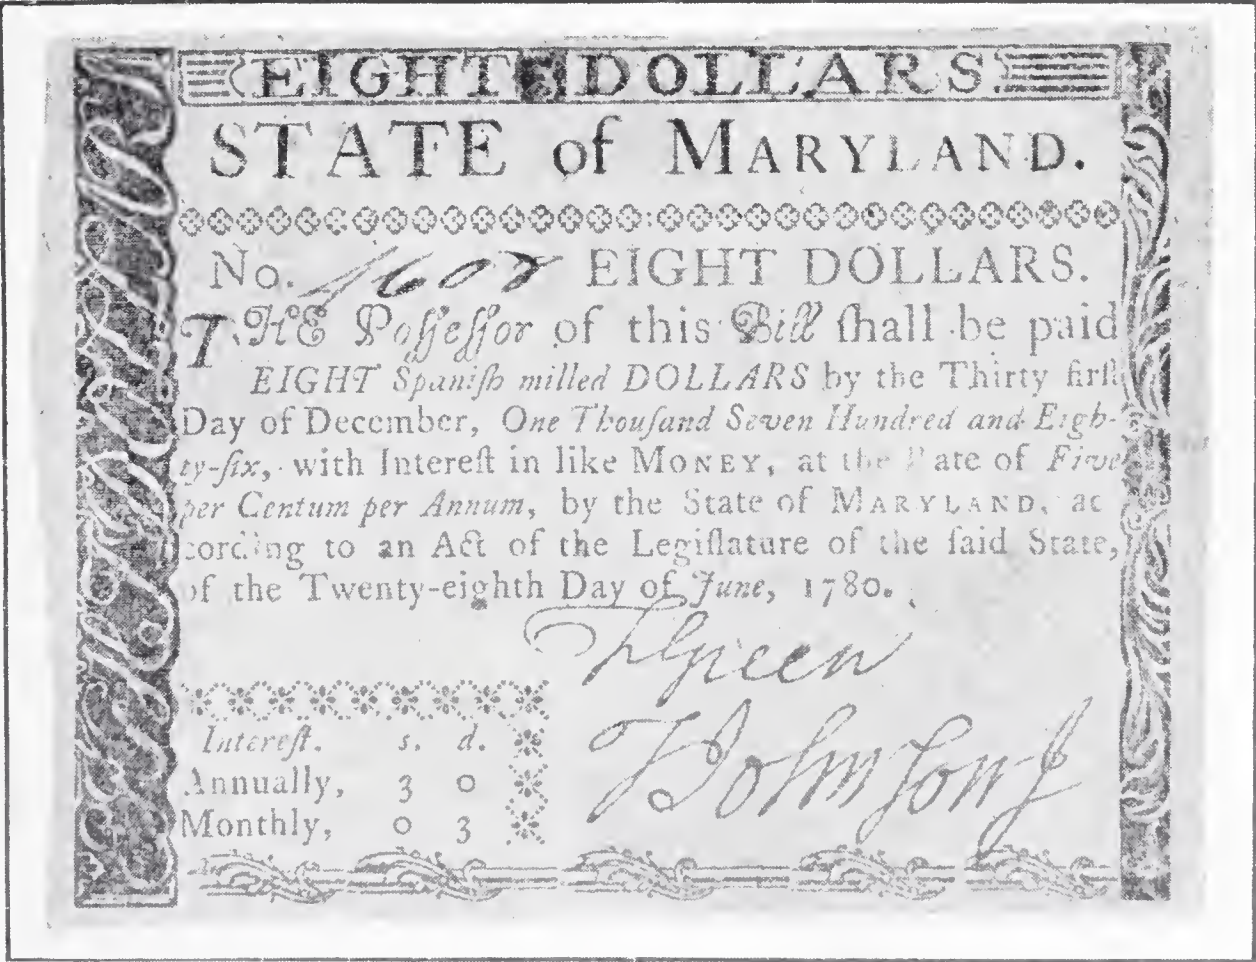 EIGHT DOLLARS
STATE of MARYLAND.
No. 1608 EIGHT DOLLARS.
THE Poſſeſſor of this Bill ſhall be paid
EIGHT Spaniſh milled DOLLARS by the Thirty firſt
Day of December, One Thouſand Seven Hundred and Eigh-
ty-ſix, with Intereſt in like MONEY, at the Rate of Five
per Centum per Annum, by the State of MARYLAND, ac
cording to an Act of the Legiſlature of the ſaid State,
of the Twenty-eighth Day of June, 1780.
Green
Johnſon
Intereſt. s. d.
Annually, 3 0
Monthly, 0 3